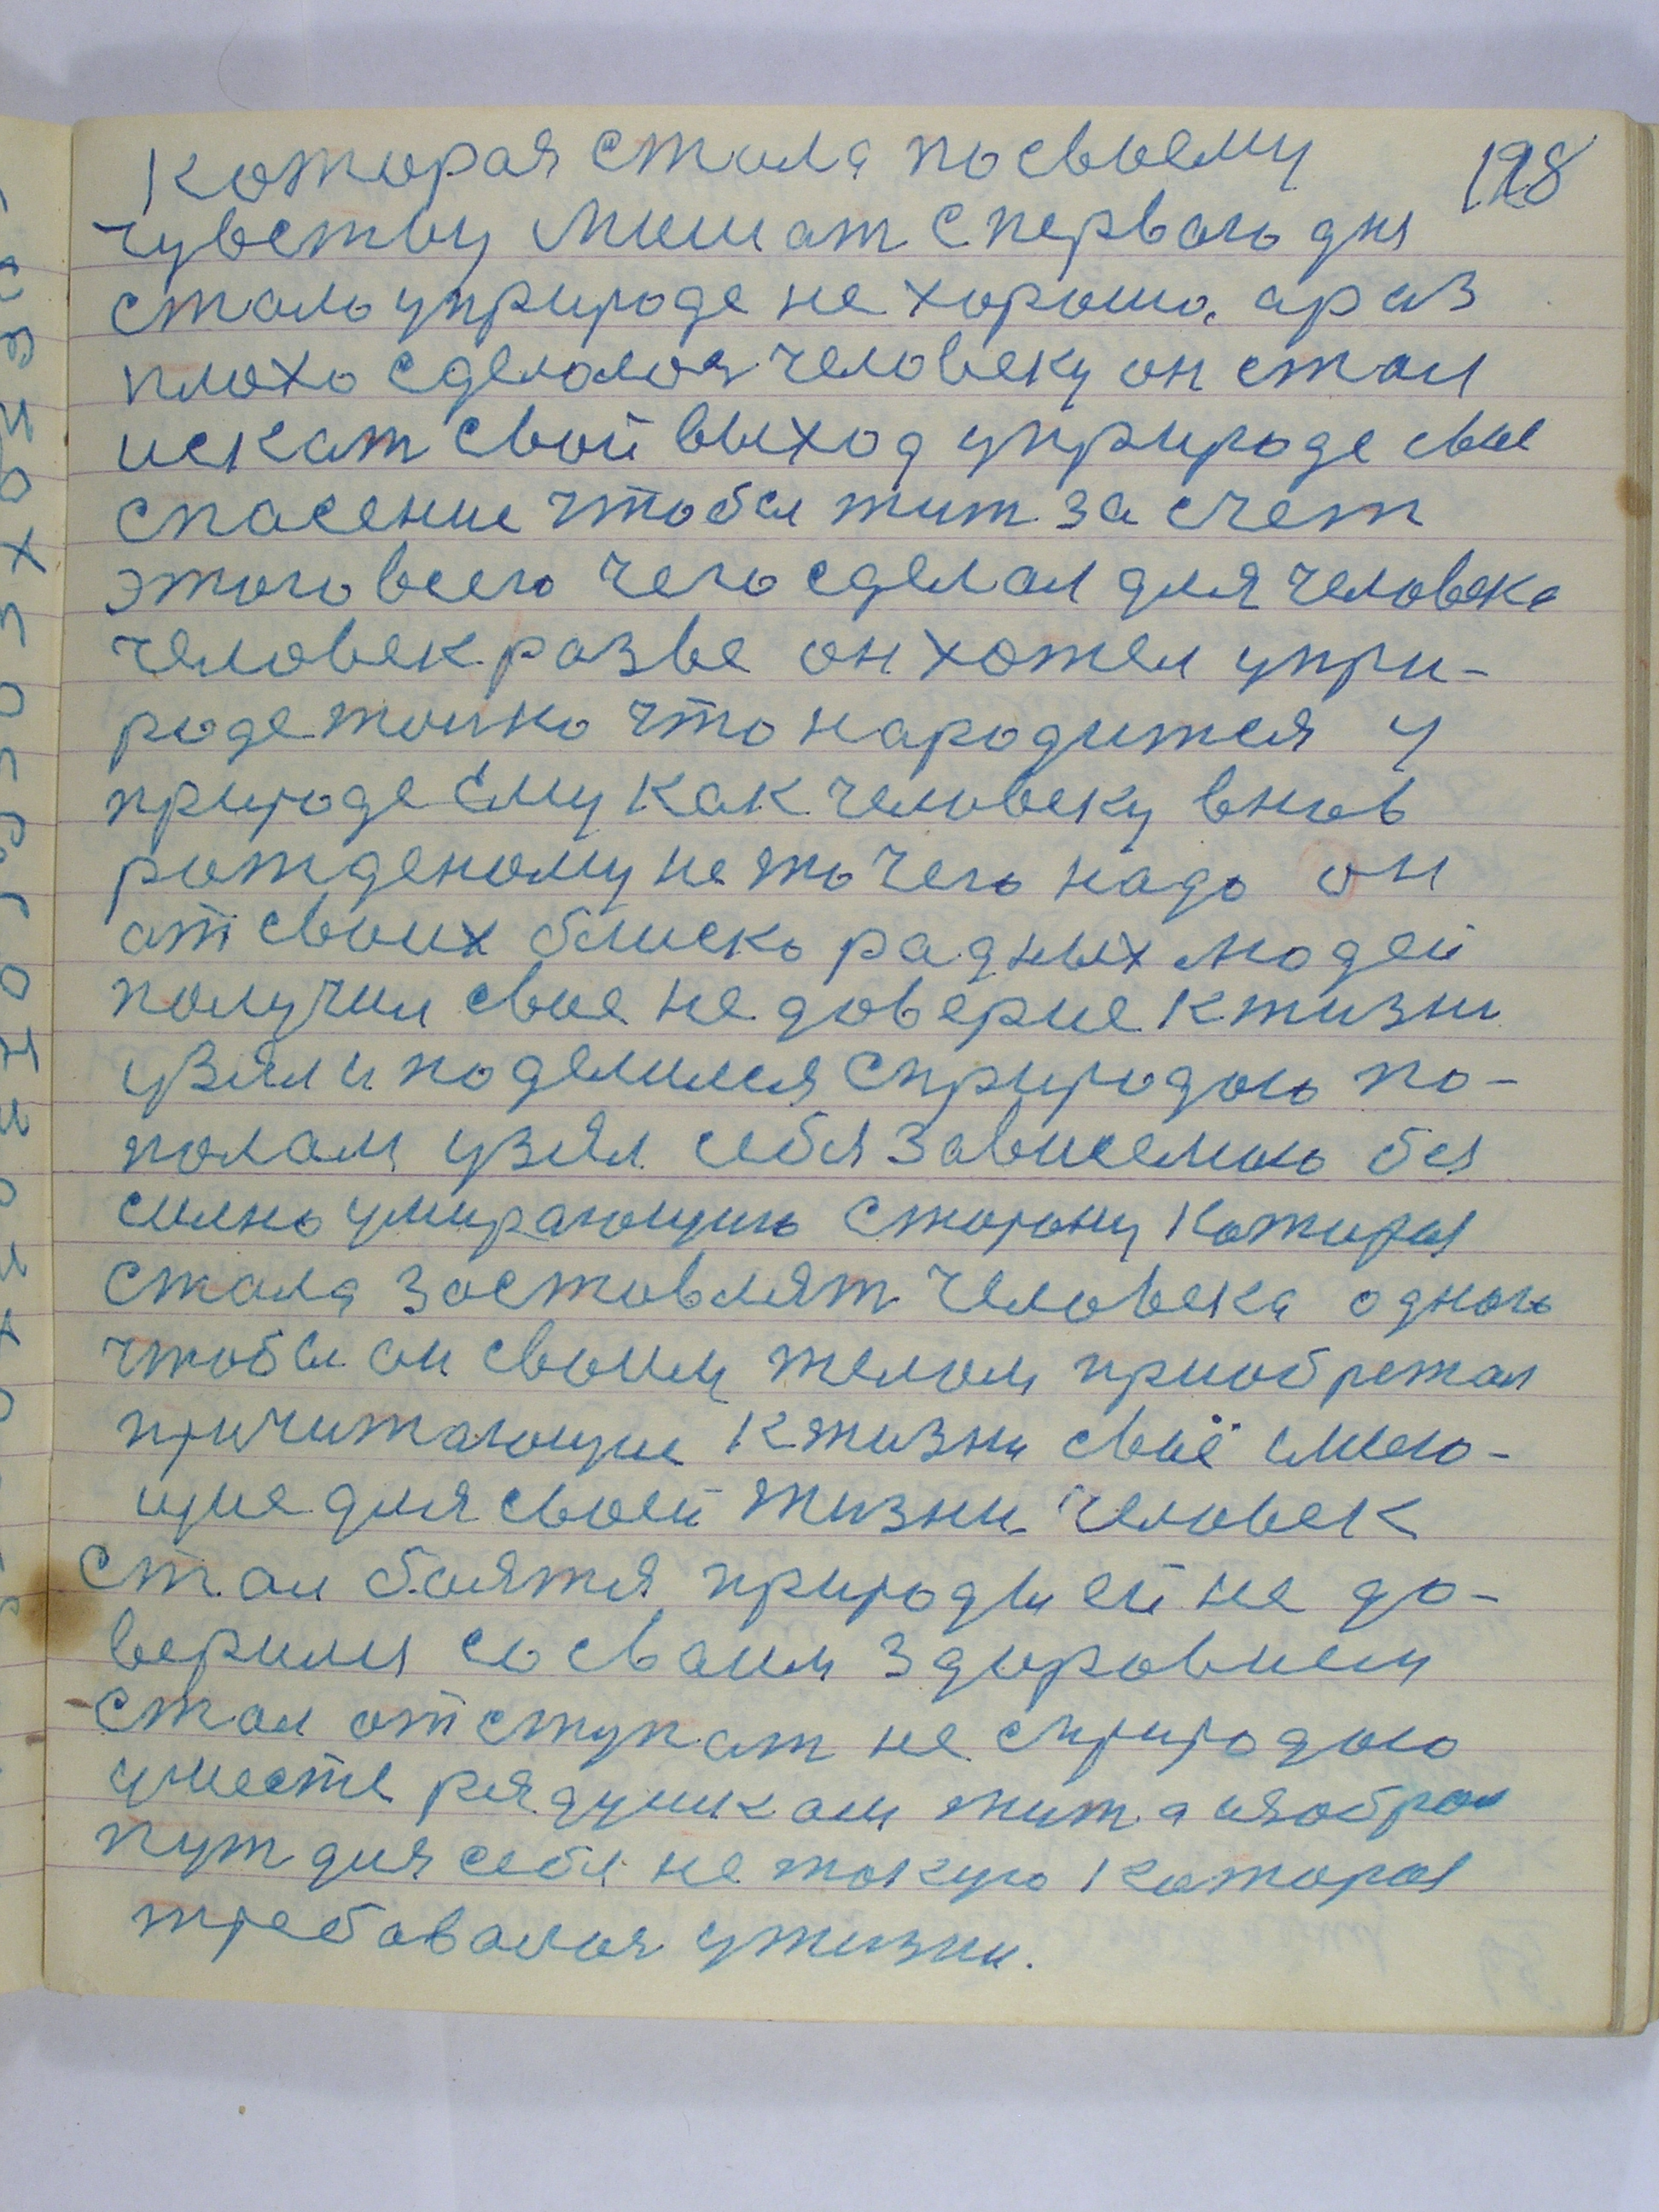 198
Которая стала посвоему
чувству мишат спервого дня
стало уприроде не хорошо, араз
плохо сделолоя человеку он стал
искат свой выход уприроде свое
спасение чтобы жит за счет
этого всего чего сделал для человека
человек разве он хотел упри-
роде толко что народится у
природе ему как человеку внов
рожденому не то чего надо он
от своих блиско радных людей
получил свое не доверие кжизни
узял и поделился сприродою по-
полам узял себя зависемою без
силно умирающую сторону которая
стала заставлят человека одного
чтобы он своим телом приобретал
причитающие кжизни своё имею-
щие для своей жизни. человек
стал боятся природы ей не до-
верился со сваим здоровием
стал отступат не сприродою
уместе рядушкам жит а изобрал
пут для себя не такую каторая
требавалоя ужизни.